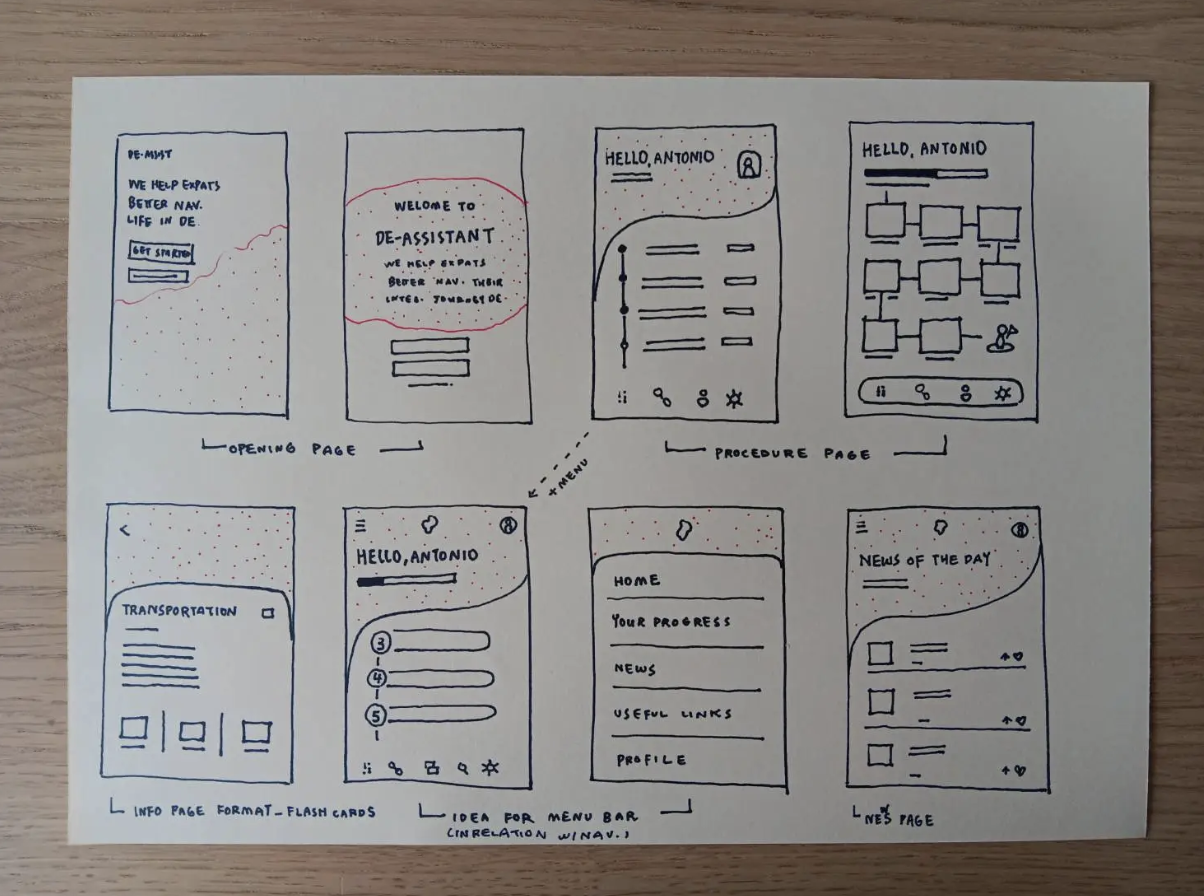 DE-MIST
WE HELP EXPATS
BETTER NAV.
LIFE IN DE.
GET STARTED
WELOME TO
DE-ASSISTANT
WE HELP EXPATS
BETTER NAV. THEIR
INTEG. JOURNEY DE.
HELLO, ANTONIO
HELLO, ANTONIO
OPENING PAGE
PROCEDURE PAGE
+ MENU
<
TRANSPORTATION
INFO PAGE FORMAT - FLASH CARDS
HELLO, ANTONIO
3
4
5
HOME
YOUR PROGRESS
NEWS
USEFUL LINKS
PROFILE
IDEA FOR MENU BAR
(IN RELATION W/NAV.)
NEWS OF THE DAY
NEWS PAGE